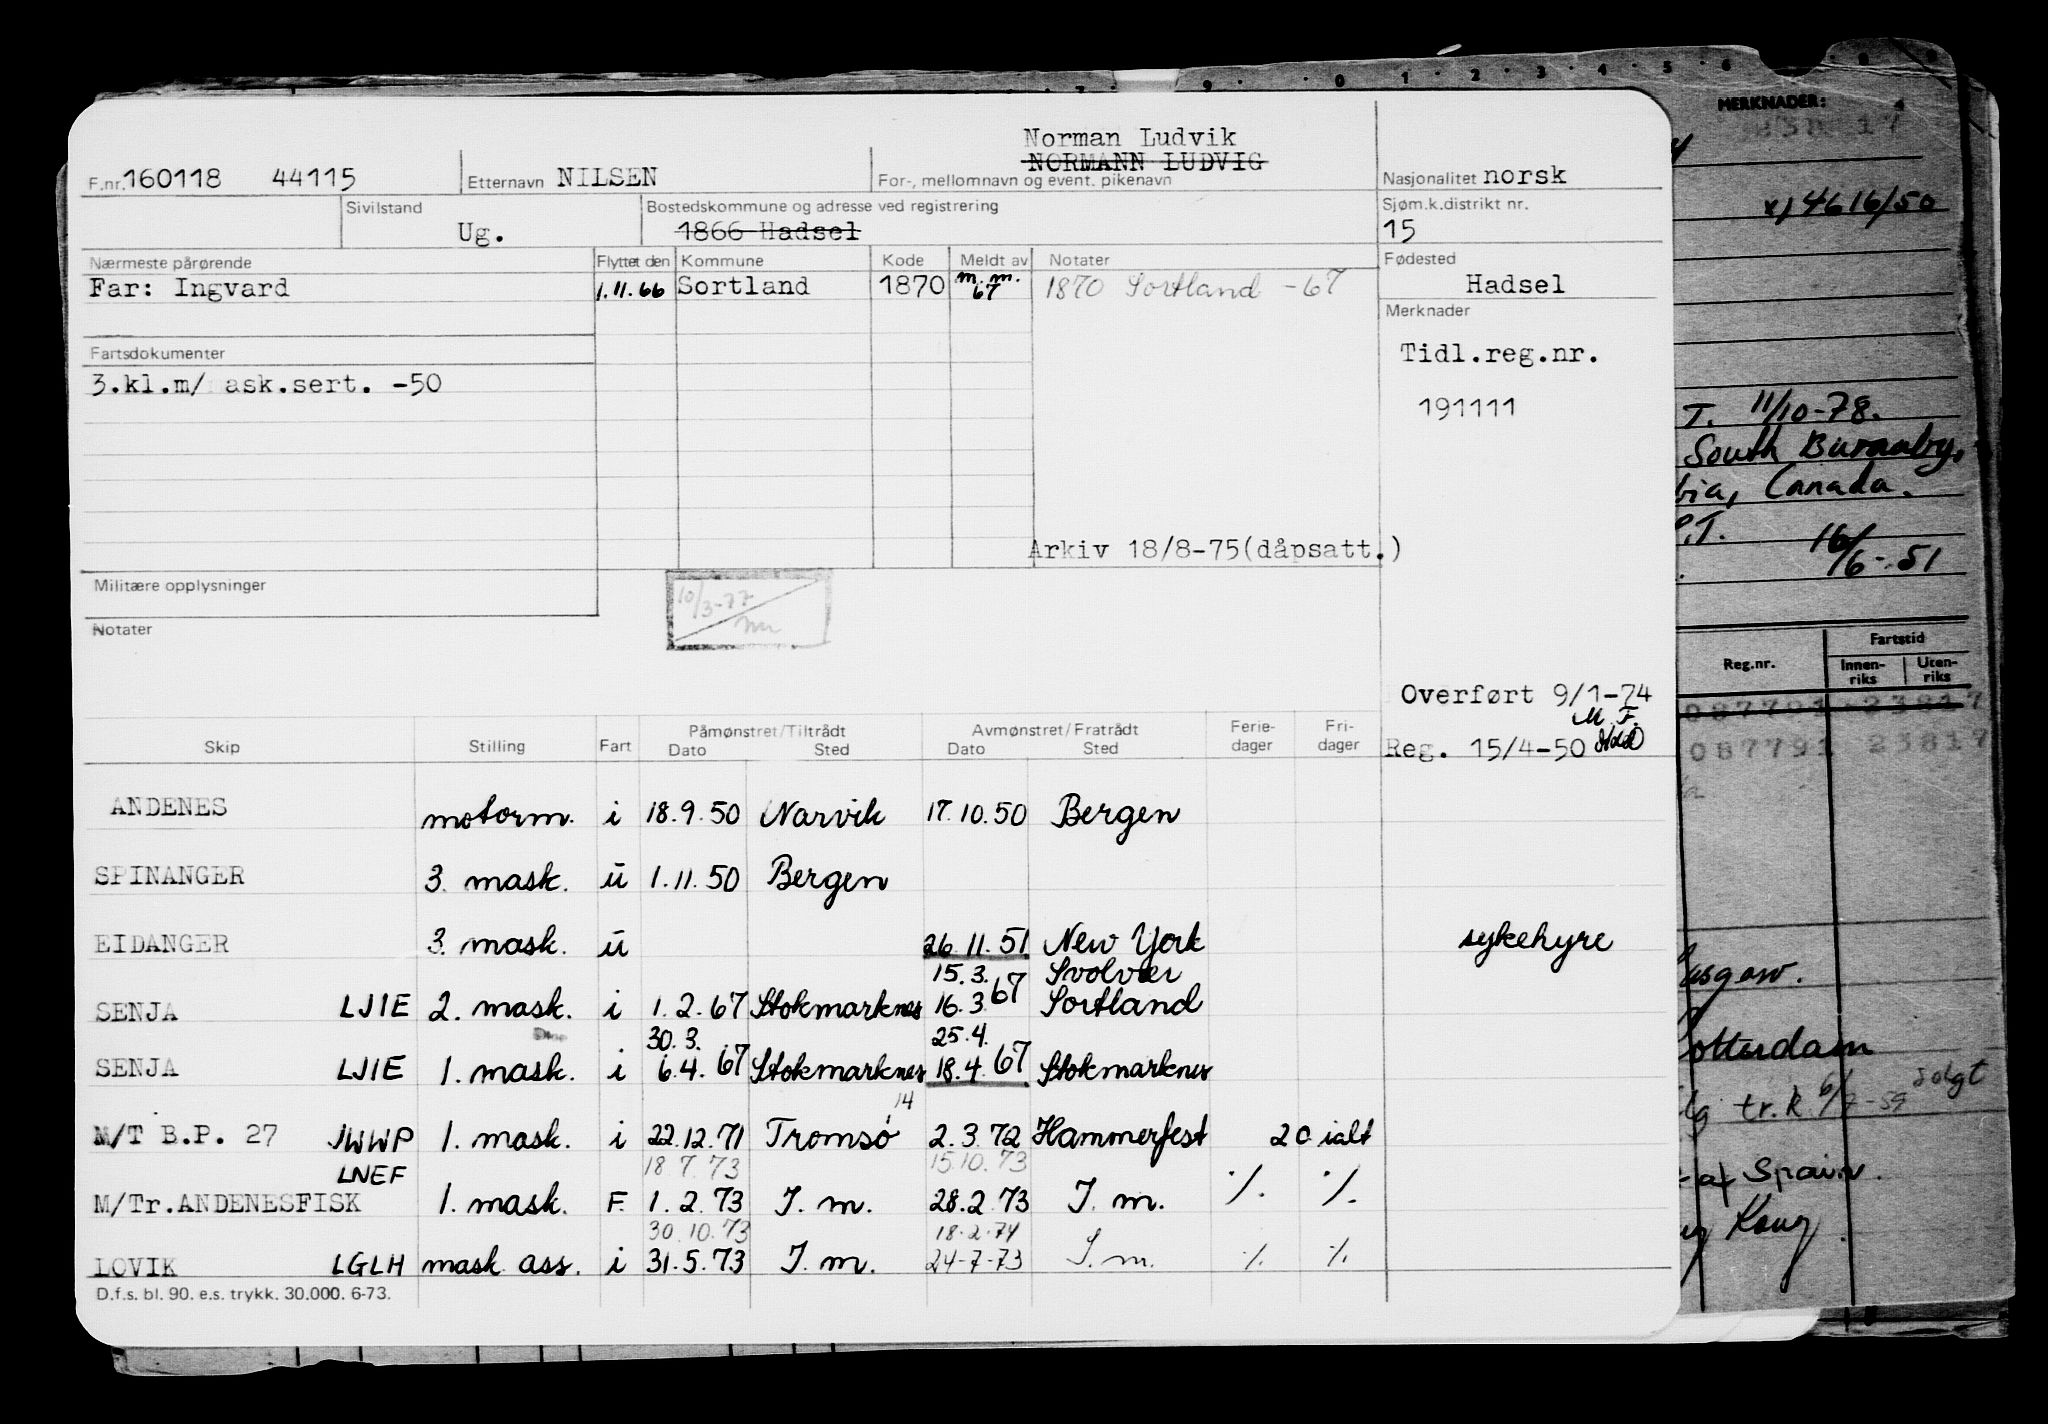 F.nr. 160118 44115
Etternavn NILSEN
Norman Ludvik
NORMANN LUDVIG
For-, mellomnavn og event. pikenavn
Nasjonalitet norsk
Sivilstand
Ug.
Bostedskommune og adresse ved registrering
1866 Hadsel
Sjøm.k.distrikt nr.
15
Nærmeste pårørende
Far: Ingvard
Flyttet den Kommune Kode Meldt av Notater
1.11.66 Sortland 1870 m.m. 67 1870 Sortland -67
Fødested
Hadsel
Merknader
Tidl.reg.nr.
191111
Fartsdokumenter
3.kl.m/ ask.sert. -50
Arkiv 18/8-75(dåpsatt.)
Militære opplysninger
10/3-77
Notater
Overført 9/1-74
M.F.
Reg. 15/4-50
Skip Stilling Fart Påmønstret/Tiltrådt Dato Sted Avmønstret/Fratrådt Dato Sted Ferie-dager Fri-dager
ANDENES motorm. i 18.9.50 Narvik 17.10.50 Bergen
SPINANGER 3. mask. u 1.11.50 Bergen
EIDANGER 3. mask. u 26.11.51 New York sykehyre
15.3. Svolvær
SENJA LJIE 2. mask. i 1.2.67 Stokmarknes 16.3.67 Sortland
30.3. 25.4.
SENJA LJIE 1. mask. i 6.4.67 Stokmarknes 18.4.67 Stokmarknes
14
M/T B.P. 27 JWWP 1. mask. i 22.12.71 Tromsø 2.3.72 Hammerfest 20 ialt
LNEF 18.7.73 15.10.73
M/Tr.ANDENESFISK 1. mask. F. 1.2.73 I.m. 28.2.73 I.m. %. %.
30.10.73 18.2.74
LOVIK LGLH mask ass. i 31.5.73 I.m. 24-7-73 I.m. % %
D.f.s. bl. 90. e.s. trykk. 30.000. 6-73.
9 · 0 1 · 2 · 3 · 4 · 5 · 6 8
MERKNADER:
x) 4616/50
T. 11/10-78.
South Burnaby,
bia, Canada.
P.T.
16/6-51
Reg.nr. Fartstid
Innen-riks Uten-riks
087791 23817
087791 23817
sgow.
otterdam
solgt
tr.k 6/7-59
af Spain.
Kong